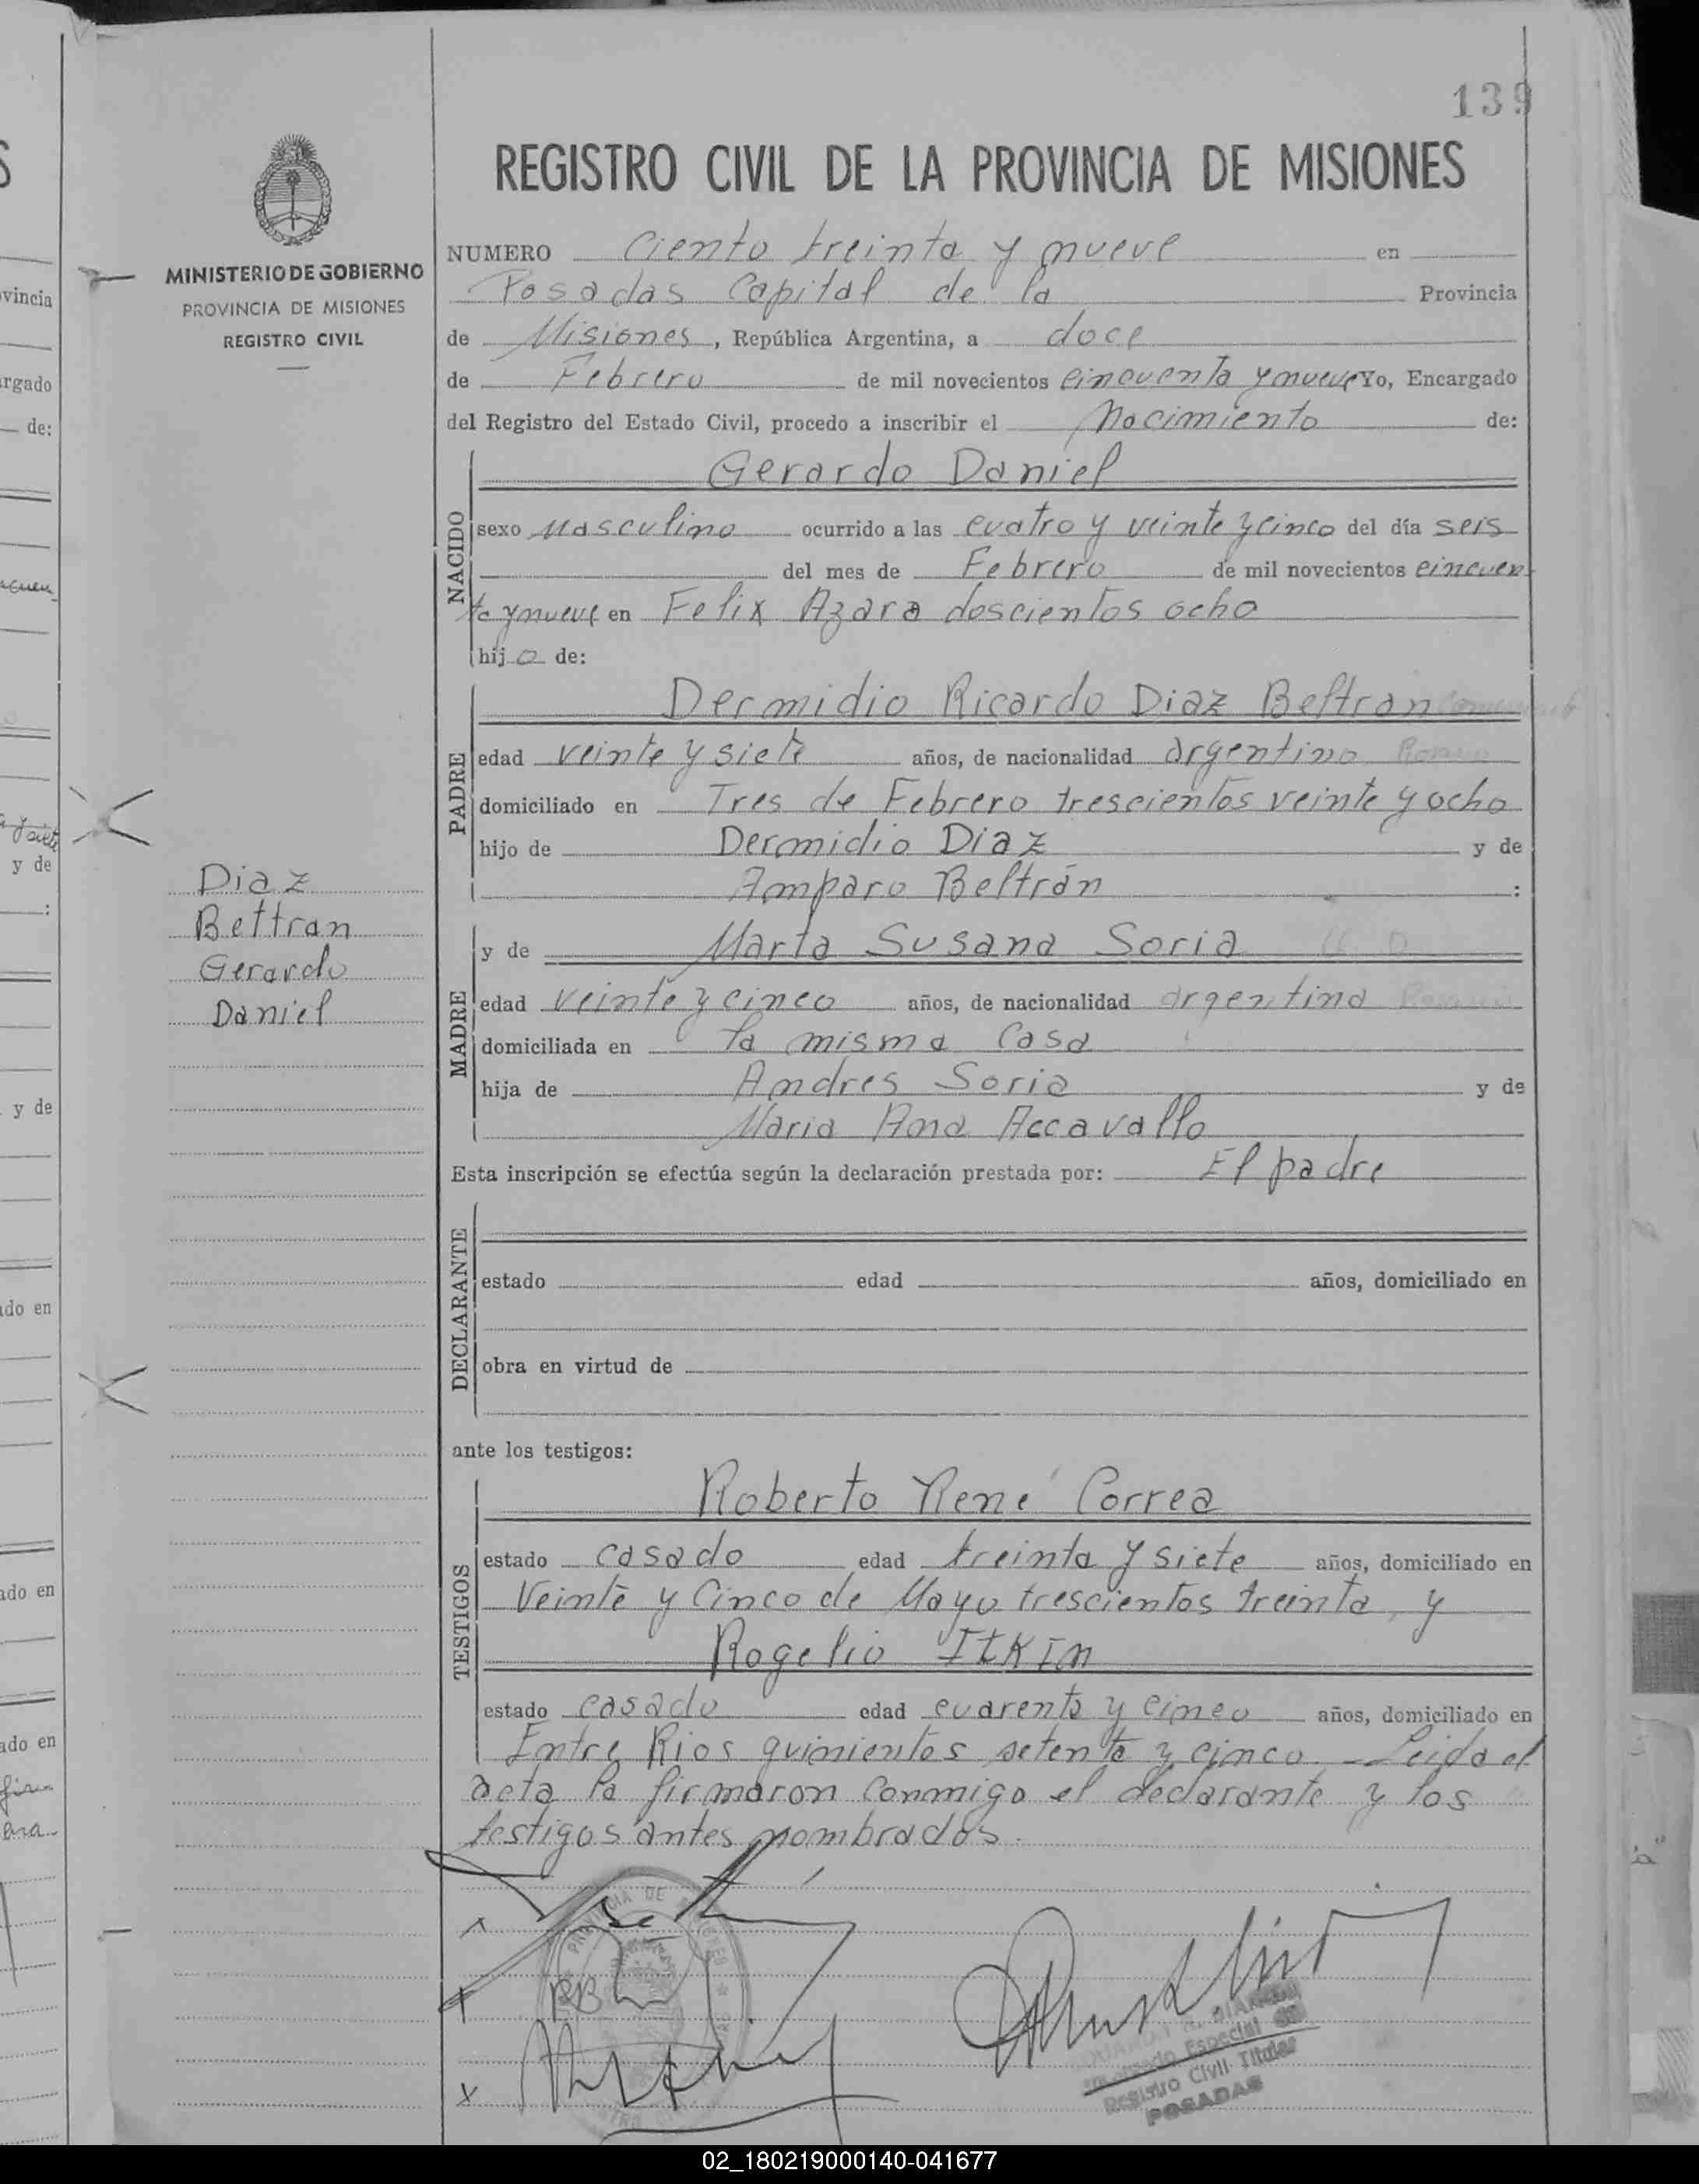 139
REGISTRO CIVIL DE LA PROVINCIA DE MISIONES
MINISTERIO DE GOBIERNO
PROVINCIA DE MISIONES
REGISTRO CIVIL
NUMERO Ciento treinta y nueve en
Posadas Capital de la Provincia
de Misiones, República Argentina, a doce
de Febrero de mil novecientos cincuenta y nueve Yo, Encargado
del Registro del Estado Civil, procedo a inscribir el Nacimiento de:
NACIDO
Gerardo Daniel
sexo Masculino ocurrido a las cuatro y veinte y cinco del día seis
del mes de Febrero de mil novecientos cincuen
ta y nueve en Felix Azara doscientos ocho
hijo de:
PADRE
Dermidio Ricardo Diaz Beltran
edad veinte y siete años, de nacionalidad argentino
domiciliado en Tres de Febrero trescientos veinte y ocho
hijo de Dermidio Diaz y de
Amparo Beltrán :
Diaz
Beltran
Gerardo
Daniel
MADRE
y de Marta Susana Soria
edad veinte y cinco años, de nacionalidad argentina
domiciliada en la misma casa
hija de Andres Soria y de
Maria Ana Accavallo
Esta inscripción se efectúa según la declaración prestada por: El padre
DECLARANTE
estado edad años, domiciliado en
obra en virtud de
ante los testigos:
TESTIGOS
Roberto René Correa
estado casado edad treinta y siete años, domiciliado en
Veinte y Cinco de Mayo trescientos treinta, y
Rogelio ITKIN
estado casado edad cuarenta y cinco años, domiciliado en
Entre Rios quinientos setenta y cinco. - Leida el
acta la firmaron conmigo el declarante y los
testigos antes nombrados.
PROVINCIA DE MISIONES
Especial del
Registro Civil Titular
POSADAS
vincia
rgado
de:
y de
y de
do en
ado en
ado en
02_180219000140-041677